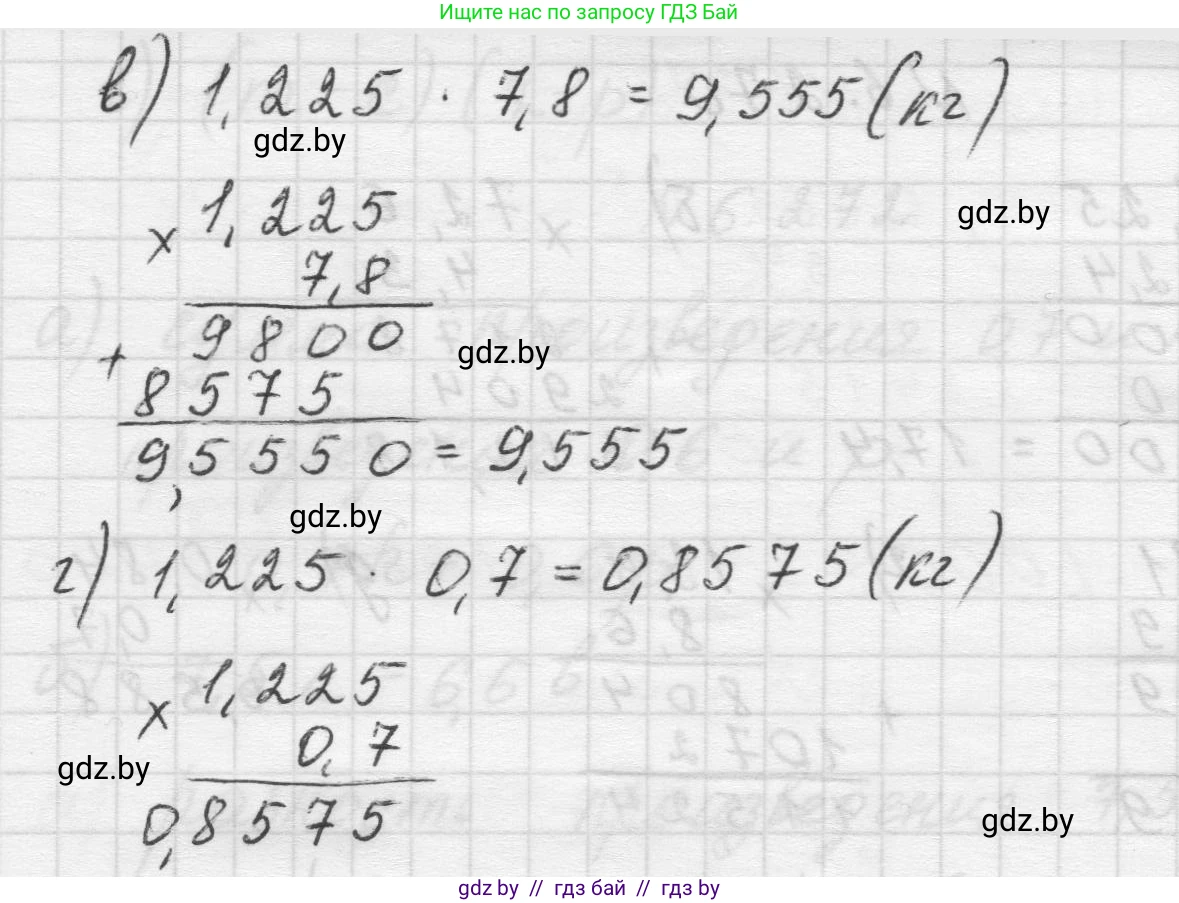 Ищите нас по запросу ГДЗ Бай
в) 1,225 · 7,8 = 9,555 (кг)
gdz.by
× 1,225
gdz.by
7,8
9800
gdz.by
+ 8575
9,5550 = 9,555
gdz.by
г) 1,225 · 0,7 = 0,8575 (кг)
× 1,225
0,7
gdz.by
0,8575
gdz.by
gdz.by // гдз бай // gdz.by